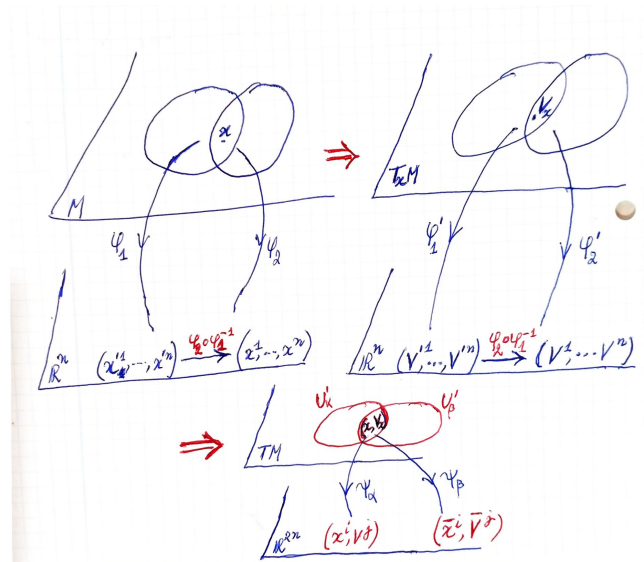 x
M
φ₁
φ₂
ℝⁿ
(x'¹,...,x'ⁿ)
φ₂∘φ₁⁻¹
(x¹,...,xⁿ)
⇒
Vₓ
TₓM
φ'₁
φ'₂
ℝⁿ
(V'¹,...,V'ⁿ)
φ₂∘φ₁⁻¹
(V¹,...Vⁿ)
⇒
U'α
U'β
(x,Vₓ)
TM
ψα
ψβ
ℝ²ⁿ
(xⁱ,Vʲ)
(x̄ⁱ,V̄ʲ)